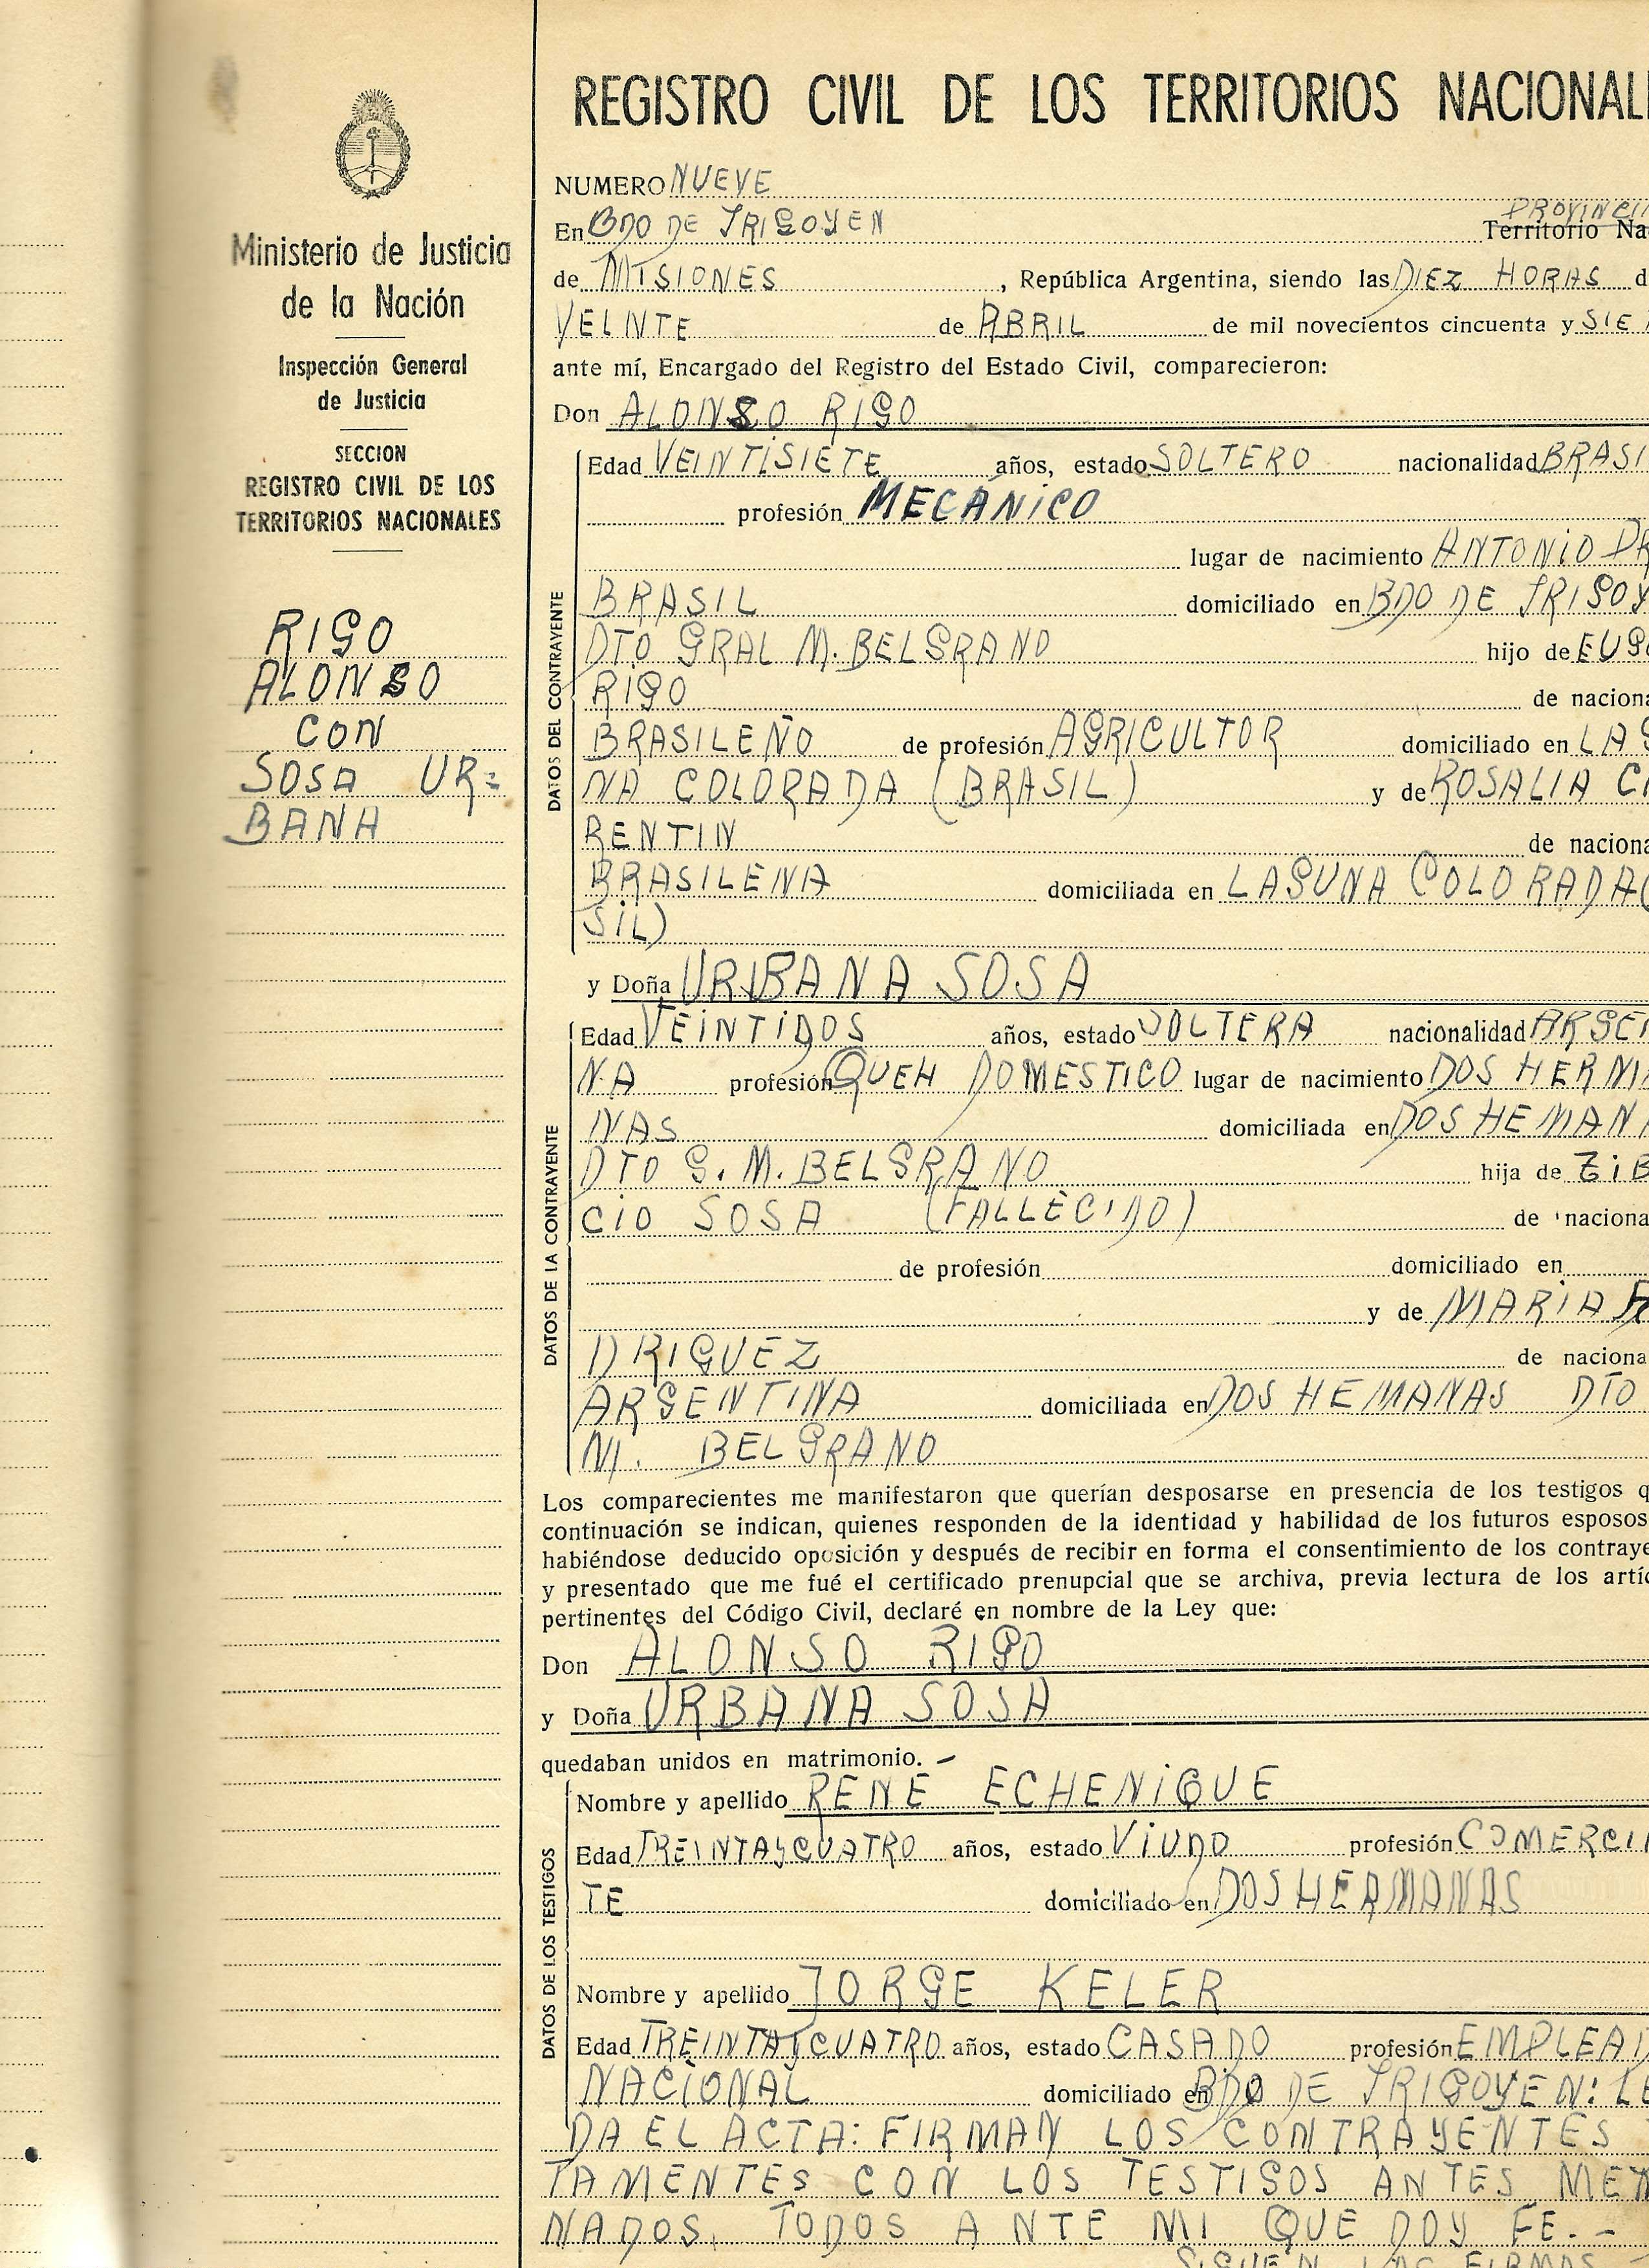 REGISTRO CIVIL DE LOS TERRITORIOS NACIONAL
Ministerio de Justicia
de la Nación
Inspección General
de Justicia
SECCION
REGISTRO CIVIL DE LOS
TERRITORIOS NACIONALES
RIGO
ALONSO
CON
SOSA UR=
BANA
NUMERO NUEVE
PROVINCI
En BDO DE IRIGOYEN Territorio Na
de MISIONES , República Argentina, siendo las DIEZ HORAS d
VEINTE de ABRIL de mil novecientos cincuenta y SIE
ante mí, Encargado del Registro del Estado Civil, comparecieron:
Don ALONSO RIGO
DATOS DEL CONTRAYENTE
Edad VEINTISIETE años, estado SOLTERO nacionalidad BRASI
profesión MECÁNICO
lugar de nacimiento ANTONIO PR
BRASIL domiciliado en BDO DE IRIGOY
DTO GRAL M. BELGRANO hijo de EUG
RIGO de naciona
BRASILEÑO de profesión AGRICULTOR domiciliado en LAG
NA COLORADA (BRASIL) y de ROSALIA C
RENTIN de naciona
BRASILENA domiciliada en LAGUNA COLORADA(
SIL)
y Doña URBANA SOSA
DATOS DE LA CONTRAYENTE
Edad VEINTIDOS años, estado SOLTERA nacionalidad ARGEN
NA profesión QUEH DOMESTICO lugar de nacimiento DOS HERMA
NAS domiciliada en DOS HEMAN
DTO G. M. BELGRANO hija de TIB
CIO SOSA (FALLECIDO) de naciona
de profesión domiciliado en
y de MARIA R
DRIGUEZ de naciona
ARGENTINA domiciliada en DOS HEMANAS DTO
M. BELGRANO
Los comparecientes me manifestaron que querían desposarse en presencia de los testigos q
continuación se indican, quienes responden de la identidad y habilidad de los futuros esposos
habiéndose deducido oposición y después de recibir en forma el consentimiento de los contraye
y presentado que me fué el certificado prenupcial que se archiva, previa lectura de los artíc
pertinentes del Código Civil, declaré en nombre de la Ley que:
Don ALONSO RIGO
y Doña URBANA SOSA
quedaban unidos en matrimonio. –
DATOS DE LOS TESTIGOS
Nombre y apellido RENE ECHENIQUE
Edad TREINTAYCUATRO años, estado VIUDO profesión COMERCIA
TE domiciliado en DOS HERMANAS
Nombre y apellido JORGE KELER
Edad TREINTAYCUATRO años, estado CASADO profesión EMPLEAD
NACIONAL domiciliado en BDO DE IRIGOYEN: LE
DA EL ACTA: FIRMAN LOS CONTRAYENTES
TAMENTES CON LOS TESTIGOS ANTES MEN
NADOS, TODOS ANTE MI QUE DOY FE.-
SIGUEN LAS FIRMAS